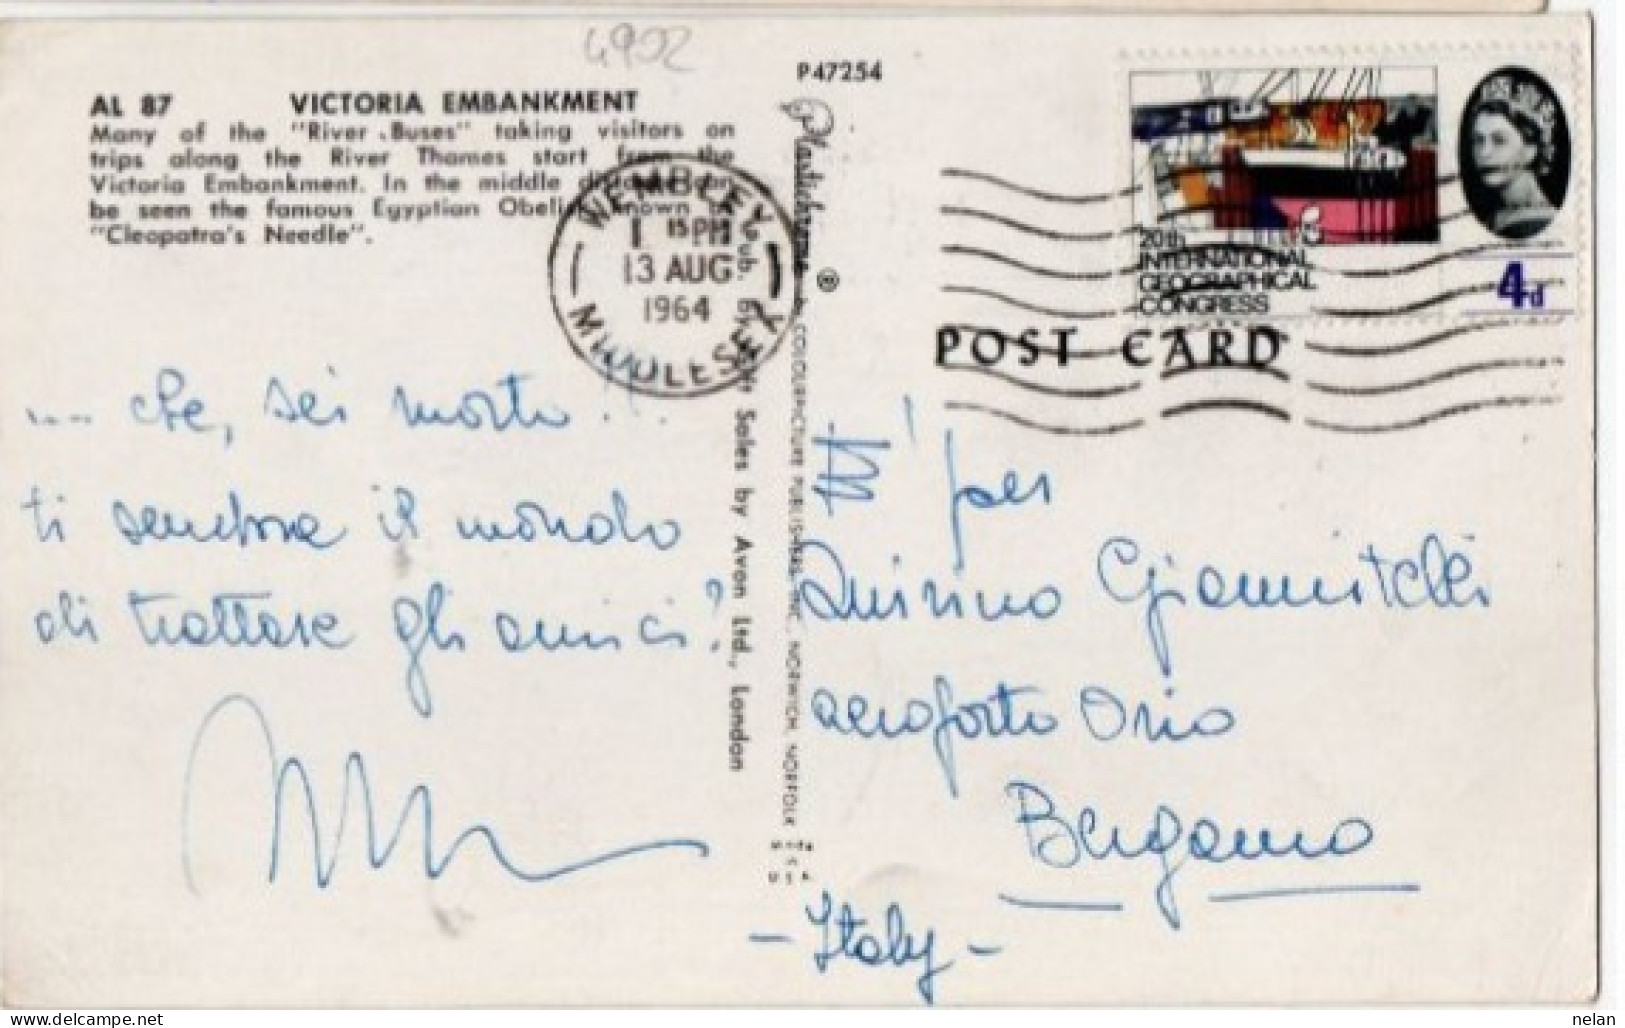 4902
AL 87 VICTORIA EMBANKMENT
Many of the "River Buses" taking visitors on
trips along the River Thames start from the
Victoria Embankment. In the middle can
be seen the famous Egyptian Obelisk known
"Cleopatra's Needle".
WEMBLEY
15 PM
13 AUG
1964
MIDDLESEX
.... che, sei morto!
ti sembra il mondo
di trattare gli amici?
P47254
Plastichrome ®
by COLOURPICTURE PUBLISHERS, INC., NORWICH, NORFOLK
Pub. & Sales by Avon Ltd., London
20th
INTERNATIONAL
GEOGRAPHICAL
CONGRESS
4d
POST CARD
per
Quirino Giannitelli
aeroporto Orio
Bergamo
- Italy -
delcampe.net
nelan